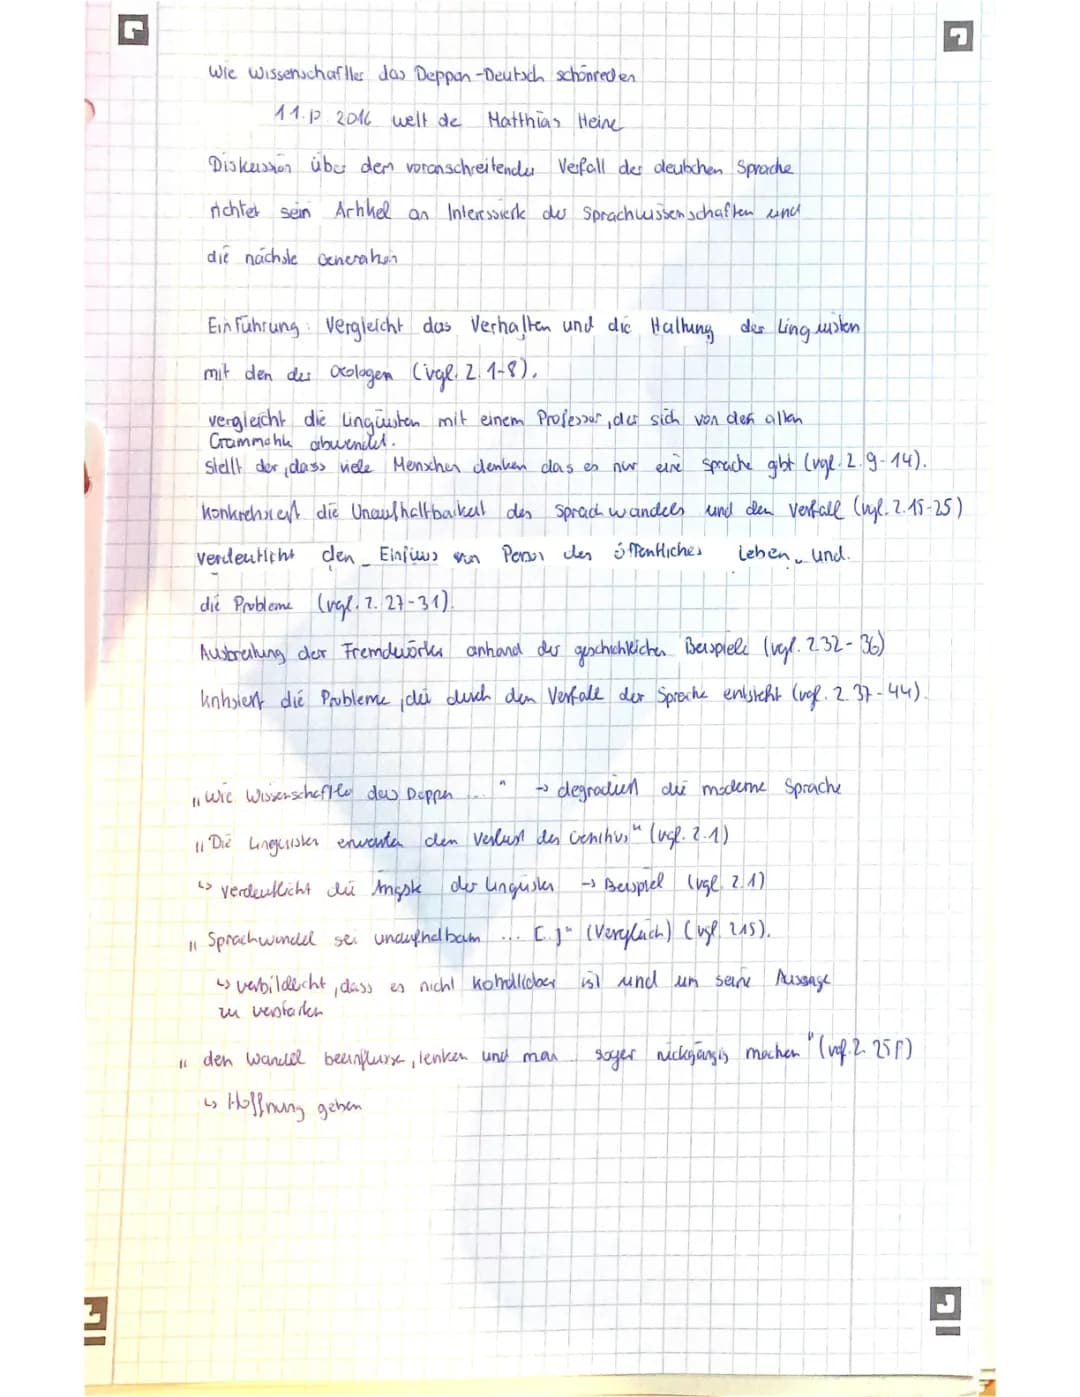 Wie Wissenschaftler das Deppen-Deutsch schönreden
11.12.2016 welt de Matthias Heine
Diskussion über den voranschreitender Verfall der deutschen Sprache
richtet sein Artikel an Interssierte der Sprachwissenschaften und
die nächste Generation
Einführung: Vergleicht das Verhalten und die Haltung der Linguisten
mit den der Ökologen (vgl. Z. 1-8).
vergleicht die Linguisten mit einem Professor, der sich von der alten
Grammatik abwendet.
stellt dar, dass viele Menschen denken das es nur eine Sprache gibt (vgl. Z. 9-14).
konkretisiert die Unaufhaltbarkeit des Sprachwandels und den Verfall (vgl. Z. 15-25)
verdeutlicht den Einfluss von des öffentliches Leben und
die Probleme (vgl. Z. 27-31).
Ausbreitung der Fremdwörter anhand der geschichtlicher Beispiele (vgl. Z 32-36)
kritisiert die Probleme, die durch den Verfall der Sprache entsteht (vgl. Z. 37-44).
"Wie Wissenschaftler das Deppen ..." → degradiert die moderne Sprache
"Die Linguisten erwarten den Verlust des Genitivs" (vgl. Z. 1)
↳ verdeutlicht die Ängste der Linguisten → Beispiel (vgl. Z. 1)
"Sprachwandel sei unaufhaltbam ... [.]" (Vergleich) (vgl. Z 15).
↳ verbildlicht, dass es nicht ist und um seine Aussage
zu verstärken
"den Wandel beeinflusse, lenken und man sogar rückgängig machen" (vgl. Z. 25f)
↳ Hoffnung geben